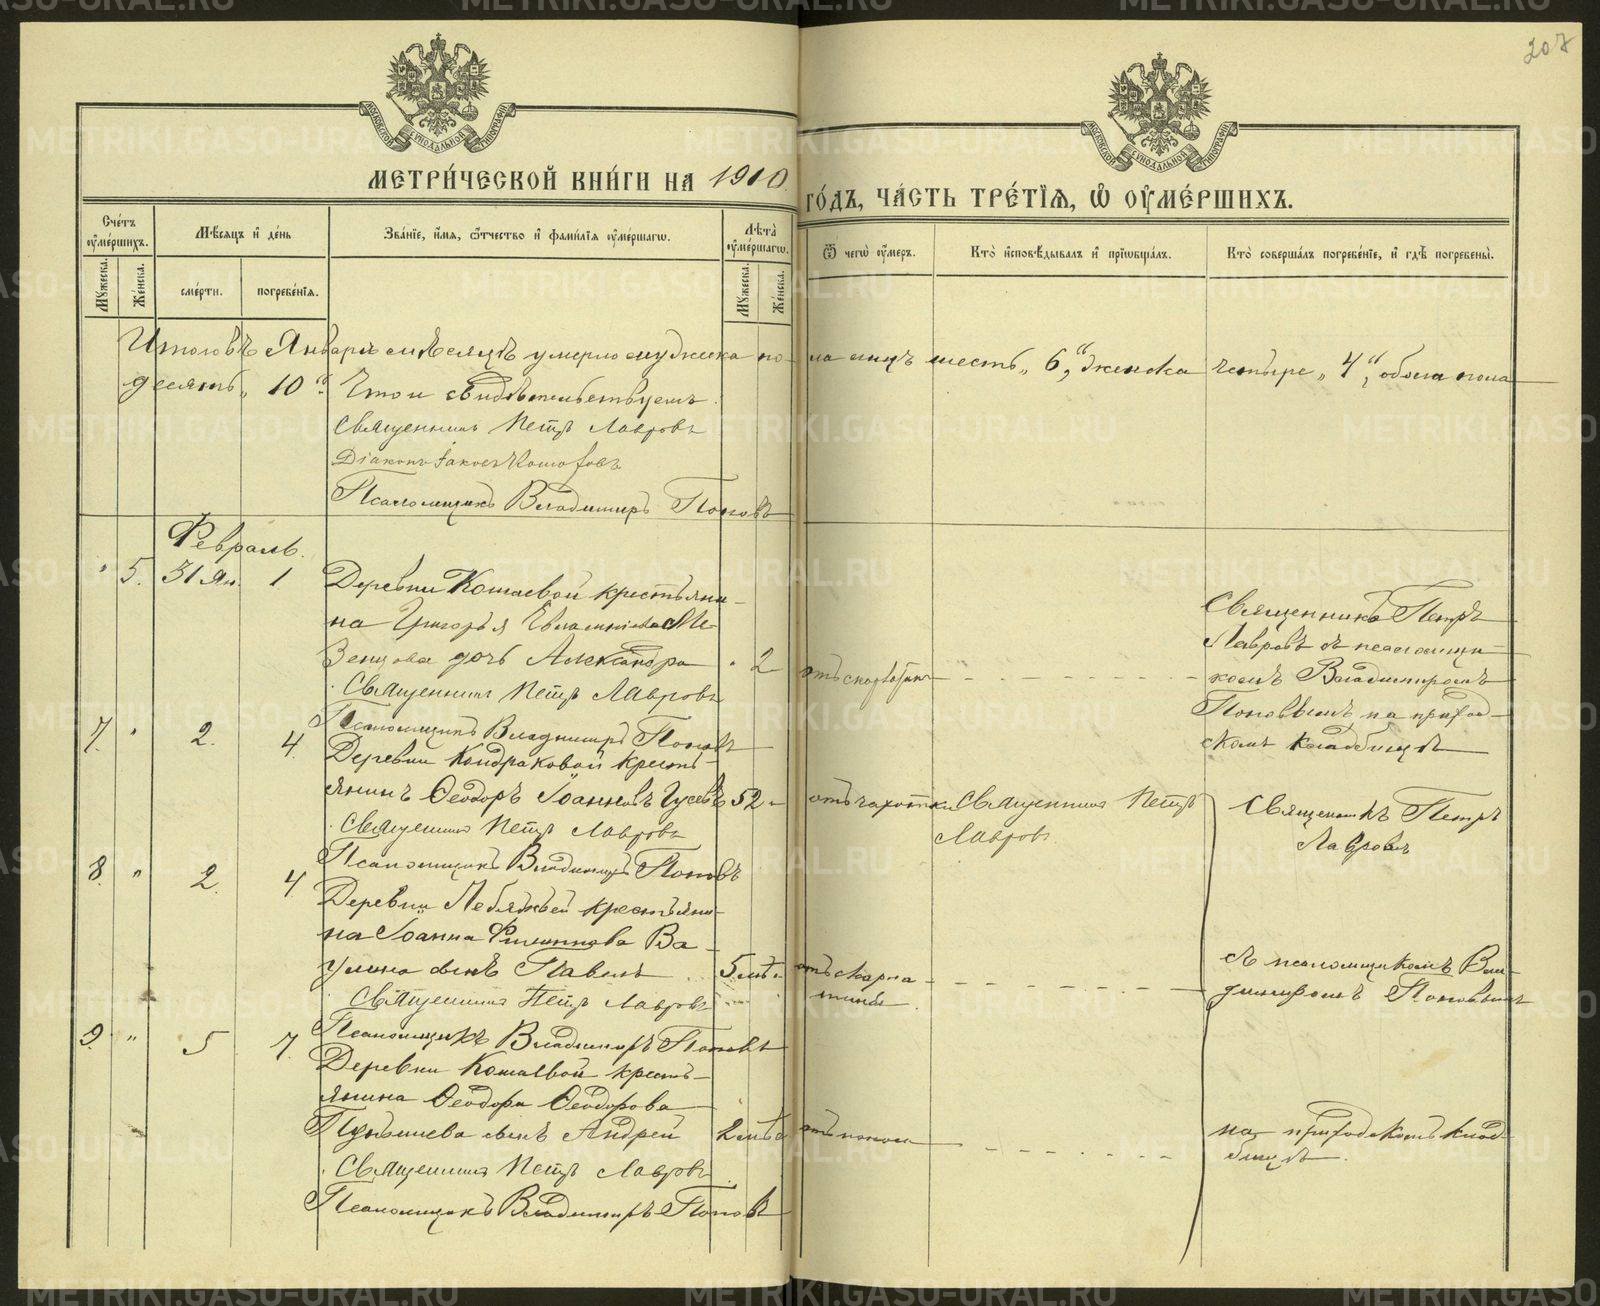 207
МЕТРИ́ЧЕСКОЙ КНИ́ГИ НА 1910
ГО́ДЪ, ЧА́СТЬ ТРЕ́ТІЯ, Ѡ҆ ОУ҆МЕ́РШИХЪ.
Сче́тъ оу҆ме́ршихъ.
Мѣ́сяцъ и҆ де́нь
Зва́ніе, и҆́мя, ѻ҆́тчество и҆ фами́лія оу҆ме́ршагѡ.
Лѣ́та оу҆ме́ршагѡ.
Ѿ чегѡ̀ оу҆́меръ.
Кто̀ и҆сповѣ́дывалъ и҆ прїѡбща́лъ.
Кто̀ соверша́лъ погребе́ніе, и҆ гдѣ̀ погребены̀.
Му́жеска.
Же́нска.
сме́рти.
погребе́нія.
Му́жеска.
Же́нска.
Итого въ Январѣ мѣсяцѣ умерло мужеска пола лицъ шесть „6", женска четыре „4", обоего пола
десять „10". Что и свидѣтельствуемъ.
Священникъ Петръ Лавровъ
Діаконъ Іаковъ
Псаломщикъ Владимиръ Поповъ
Февраль.
" 5. 31 Ян. 1
Деревни Кошаевой крестьяни-
на Григорія Евлампіева Ме-
зенцова дочь Александра " 2
Священникъ Петръ Лавровъ
Псаломщикъ Владимиръ Поповъ
отъ скарлатины
Священникъ Петръ
Лавровъ съ псаломщи-
комъ Владимиромъ
Поповымъ на приход-
скомъ кладбищѣ
7. " 2. 4.
Деревни Кондраковой кресть-
янинъ Ѳеодоръ Іоанновъ Гусевъ 52 "
Священникъ Петръ Лавровъ
Псаломщикъ Владимиръ Поповъ
отъ чахотки
Священникъ Петръ
Лавровъ
Священникъ Петръ
Лавровъ
8. " 2. 4
Деревни Лебяжьей крестьяни-
на Іоанна Филиппова Ва-
улина сынъ Павелъ 5 лѣт
Священникъ Петръ Лавровъ
Псаломщикъ Владимиръ Поповъ
отъ скарла-
тины
съ псаломщикомъ Вла-
димиромъ Поповымъ
9. " 5 7.
Деревни Кошаевой кресть-
янина Ѳеодора Ѳеодорова
сынъ Андрей
Священникъ Петръ Лавровъ
Псаломщикъ Владимиръ Поповъ
отъ поноса
на приходскомъ клад-
бищѣ.
METRIKI.GASO-URAL.RU